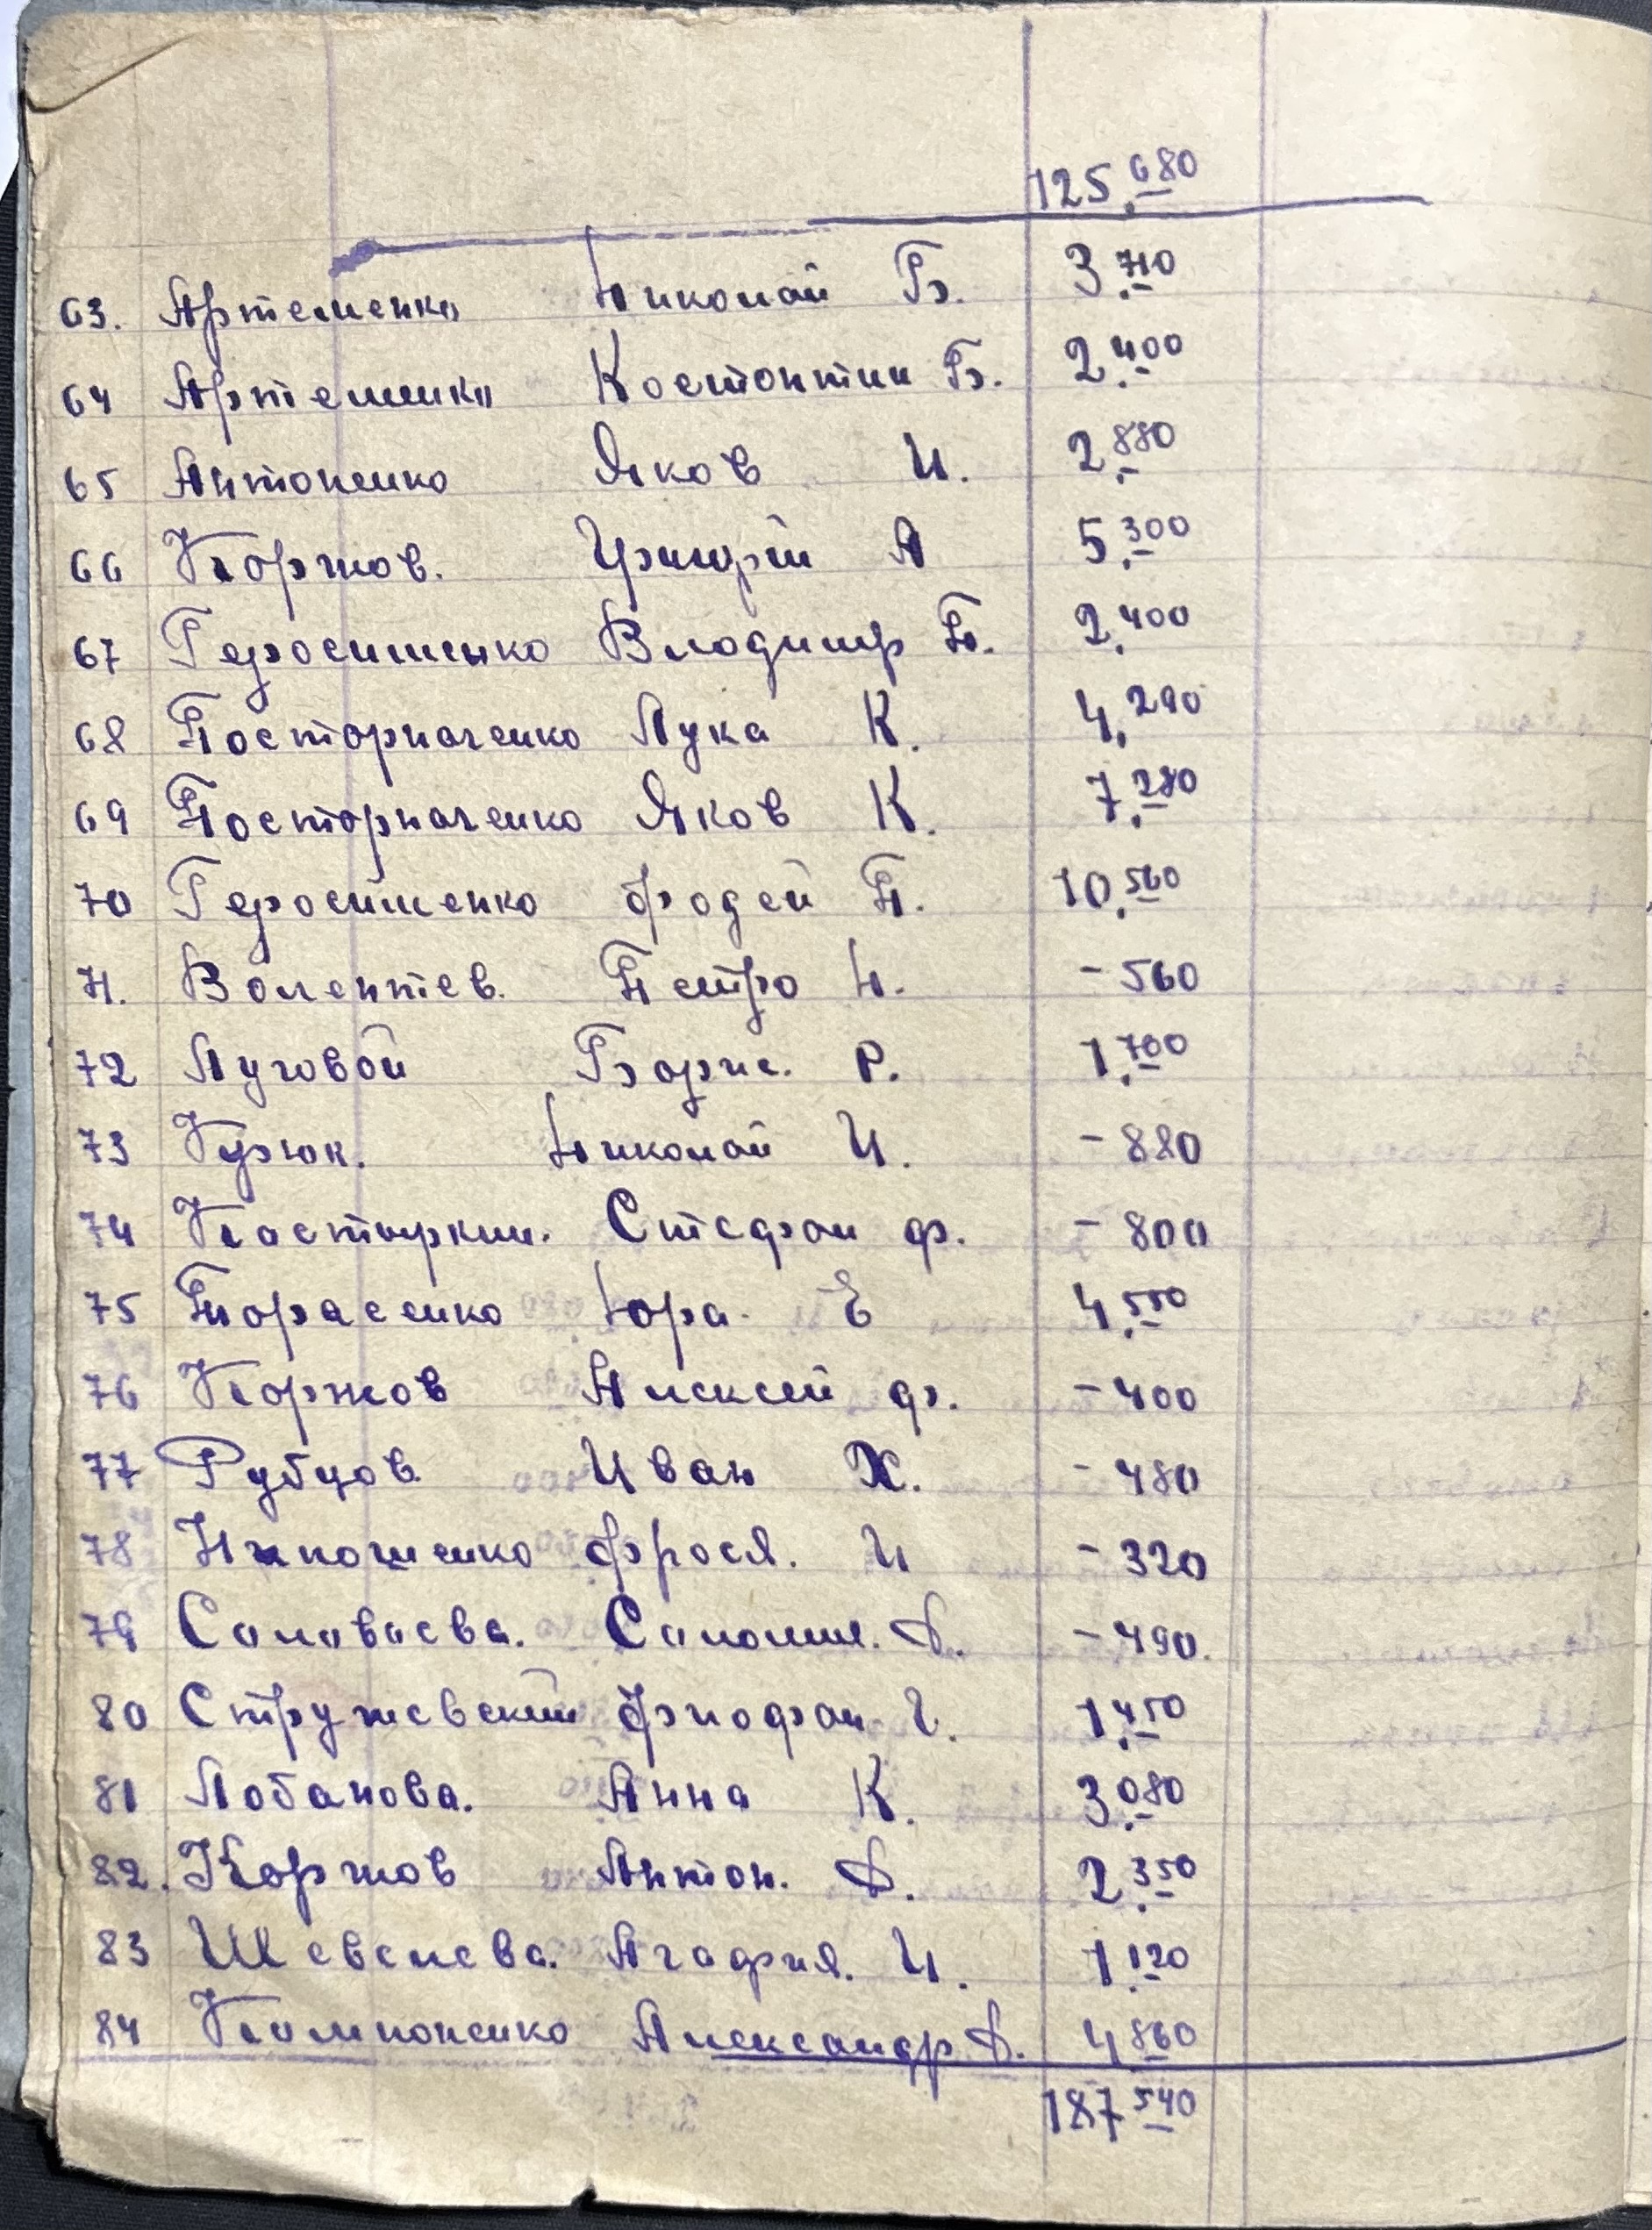 125.680
63. Артеменко Николай Б. 3.710
64 Артеменко Костонтин Б. 2.400
65 Антоненко Яков И. 2.880
66 Коржов. Григорий А 5.300
67 Геросименко Владимир П. 2.400
68 Посторначенко Лука К. 4.290
69 Посторначенко Яков К. 7.280
70 Геросименко Фадей П. 10.560
71. Волентев. Петро Н. - 560
72 Луговой Борис. Р. 1.700
73 Курюк. Николай И. - 880
74 Касторкин. Стефан Ф. - 800
75 Порасенко Юра. Е 4.550
76 Коржов Алексей Ф. - 400
77 Рубцов Иван Х. - 480
78 Фрося. И - 320
79 Саловаева. Саломия. Д. - 490.
80 Стружевский Г. 1.450
81 Лобанова. Анна К. 3.080
82. Коржов Антон. Д. 2.350
83 Агафия. И. 1.120
84 Александр Д. 4.860
187.540